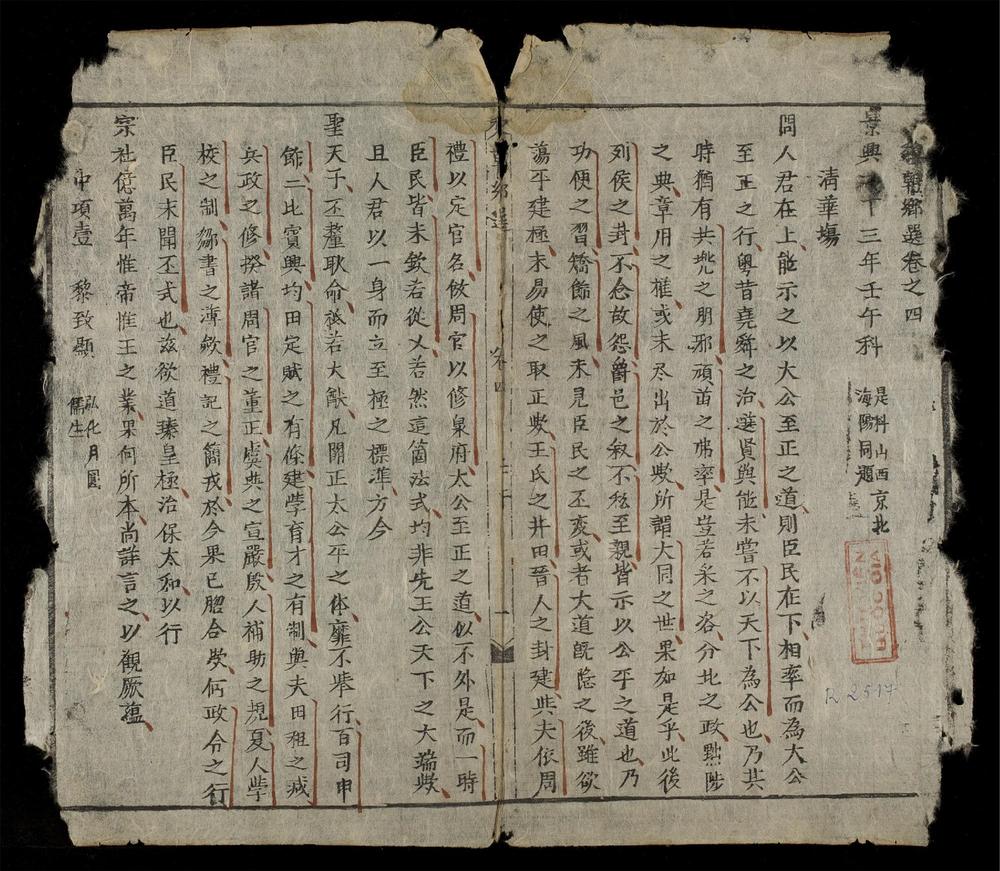 鄉選卷之四
景興四十三年壬午科
是科山西京北
海陽同題
清華場
問人君在上能示之以大公至正之道則臣民在下相率而為大公
至正之行粵昔堯舜之治選賢與能未嘗不以天下為公也乃共
時猶有共兜之朋邪頑苗之弗率是豈若采之咨分北之政黜陟
之典章用之權或未尽出於公歟所謂大同之世果如是乎此後
列侯之封不念故怨爵邑之叙不私至親皆示以公平之道也乃
功便之習矯飾之風未見臣民之丕变或者大道既隐之後雖欲
蕩平建極未易使之取正歟王氏之井田晉人之封建其夫依周
禮以定官名倣周官以修泉府太公至正之道似不外是而一時
臣民皆未欽若從乂若然這箇法式均非先王公天下之大端歟
且人君以一身而立至極之標準方今
聖天子丕釐耿命祗若大猷凡關正太公平之体靡不举行百司申
餙二比賓興均田定賦之有條建学育才之有制與夫田租之減
兵政之修揆諸周官之董正虞典之宣嚴殷人補助之規夏人学
校之制鄒書之薄斂禮記之簡戎於今果已脗合歟何政令之行
臣民未聞丕式也兹欲道臻皇極治保太和以行
宗社億萬年惟帝惟王之業果何所本尚詳言之以觀厥蘊
中項壹 黎致顯
弘化月圓
儒生
鄉選 卷四
R 2517